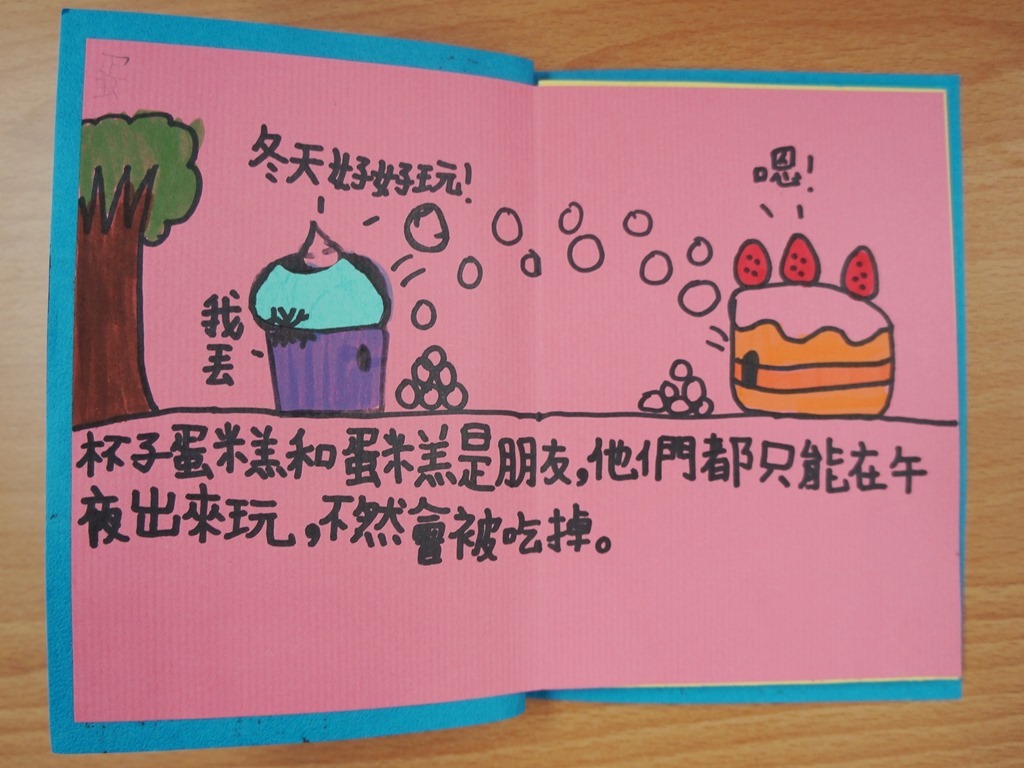 冬天好好玩!
嗯!
我
丟
杯子蛋米糕和蛋米糕是朋友,他們都只能在午
夜出來玩,不然會被吃掉。